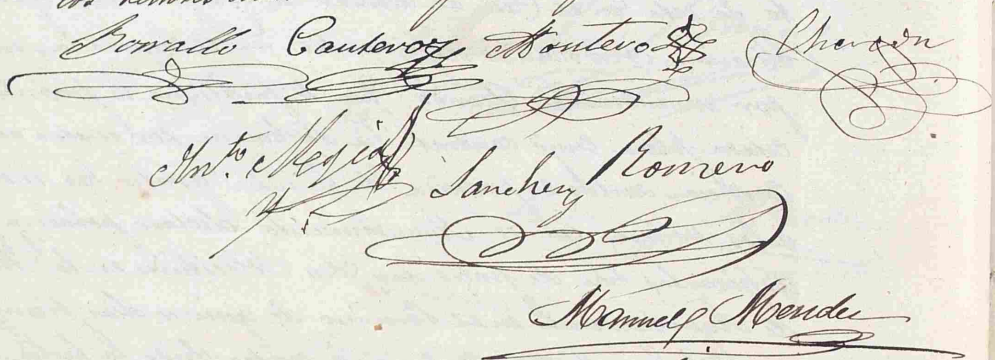 Borrallo Canteroz Montero Chacón
Anto. Megia Sanchez Romero
Manuel Mendez